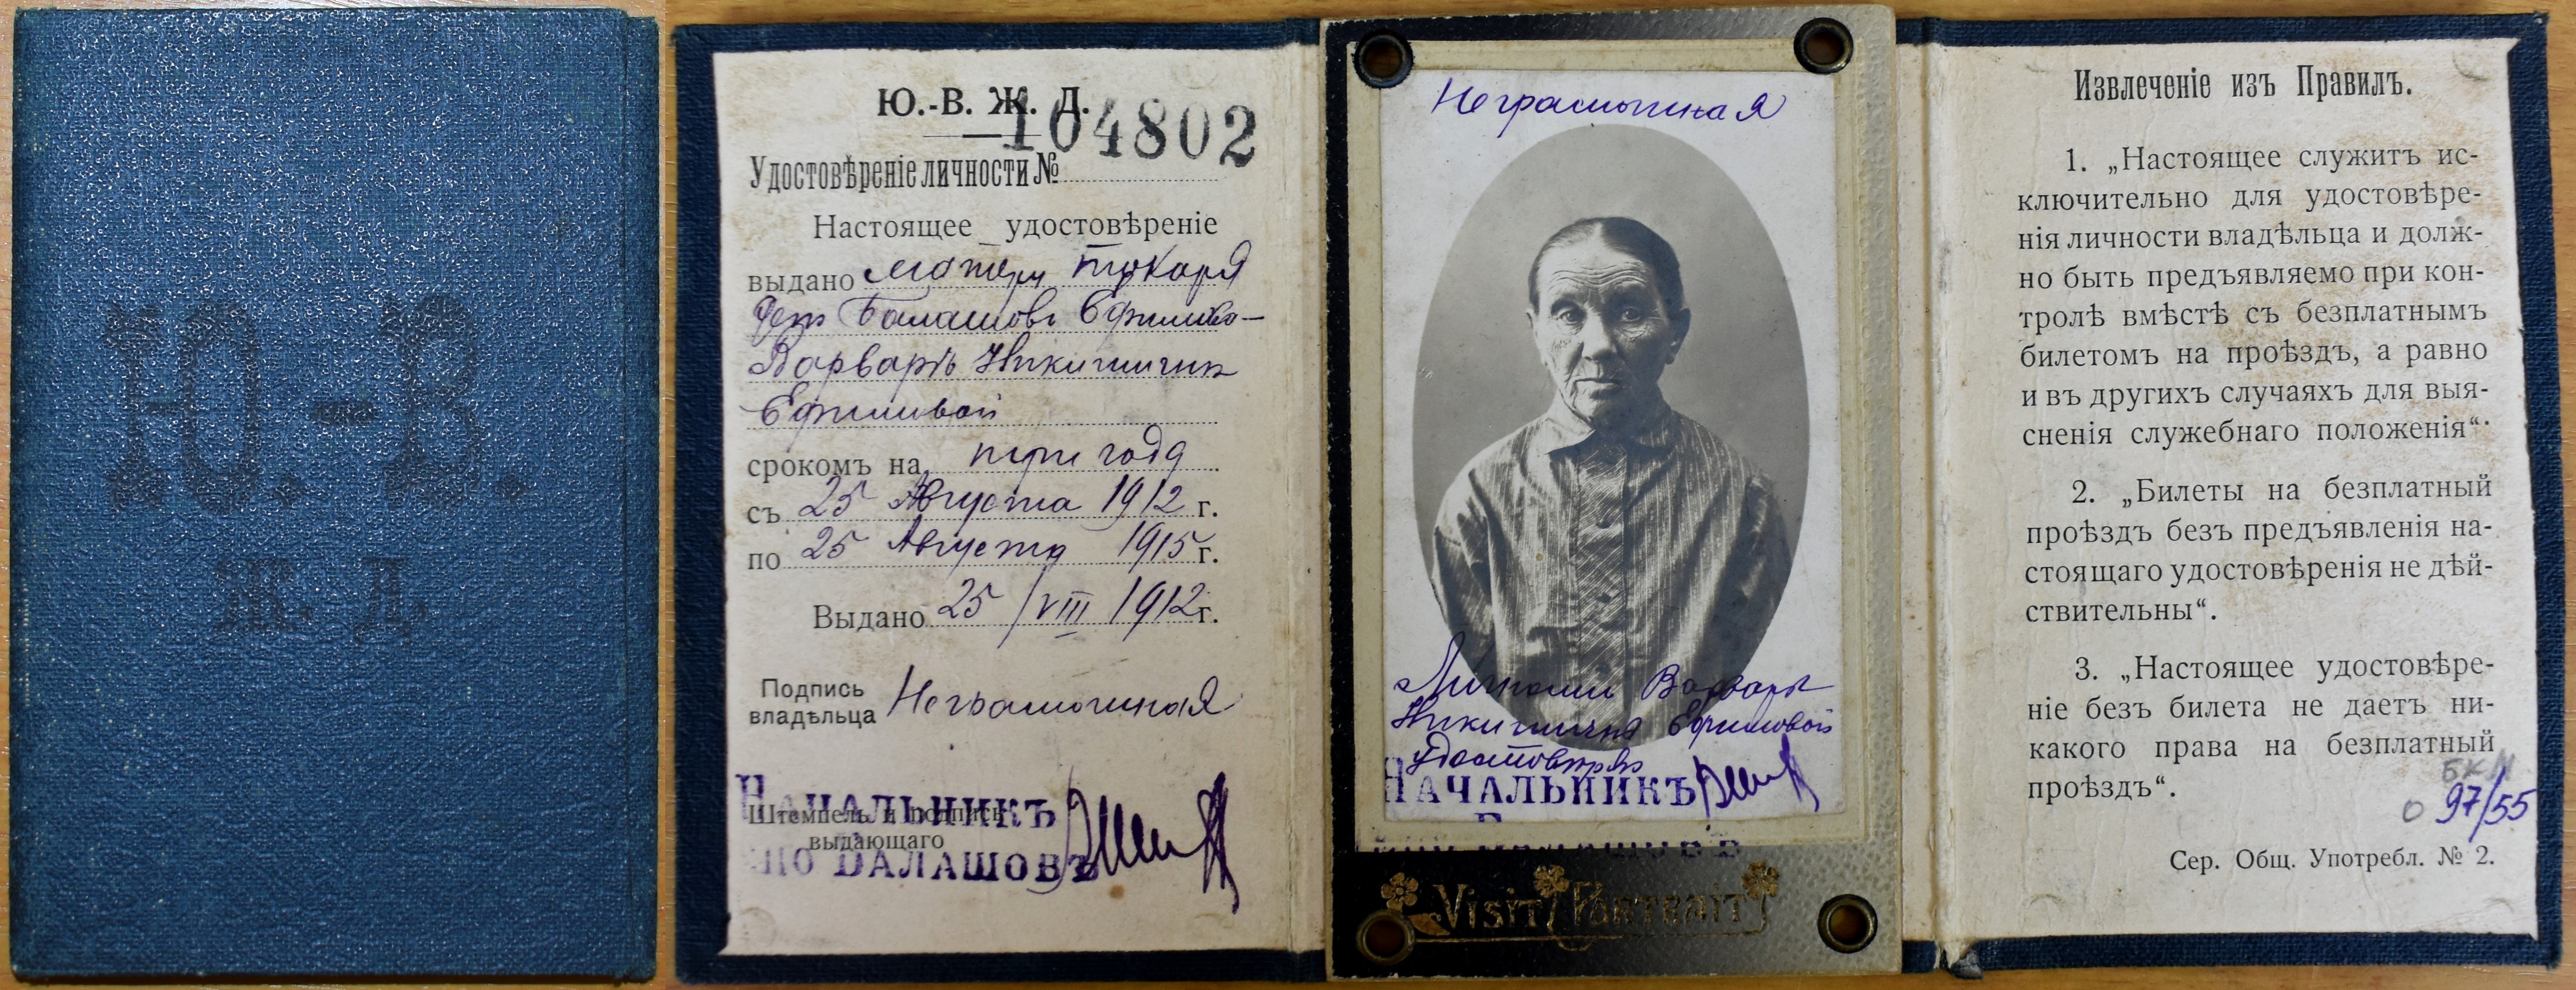 Ю.-В.
Ж. Д.
Ю.-В. Ж. Д.
104802
Удостовѣреніе личности №
Настоящее удостовѣреніе
выдано матери токаря
Депо Балашовъ Ефимова
Варварѣ Никитичнѣ
Ефимовой
срокомъ на три года
съ 25 Августа 1912 г.
по 25 Августа 1915 г.
Выдано 25/VIII 1912 г.
Подпись
владѣльца Неграмотная
Начальникъ
Штемпель и подпись
выдающаго
Балашовъ
Неграмотная
Личность Варвары
Никитичны Ефимовой
удостовѣряю
Начальникъ
Visit Portrait
Извлеченіе изъ Правилъ.
1. „Настоящее служитъ ис-
ключительно для удостовѣре-
нія личности владѣльца и долж-
но быть предъявляемо при кон-
тролѣ вмѣстѣ съ безплатнымъ
билетомъ на проѣздъ, а равно
и въ другихъ случаяхъ для выя-
сненія служебнаго положенія“.
2. „Билеты на безплатный
проѣздъ безъ предъявленія на-
стоящаго удостовѣренія не дѣй-
ствительны“.
3. „Настоящее удостовѣре-
ніе безъ билета не даетъ ни-
какого права на безплатный
проѣздъ“.
БКМ
О 97/55
Сер. Общ. Употребл. № 2.